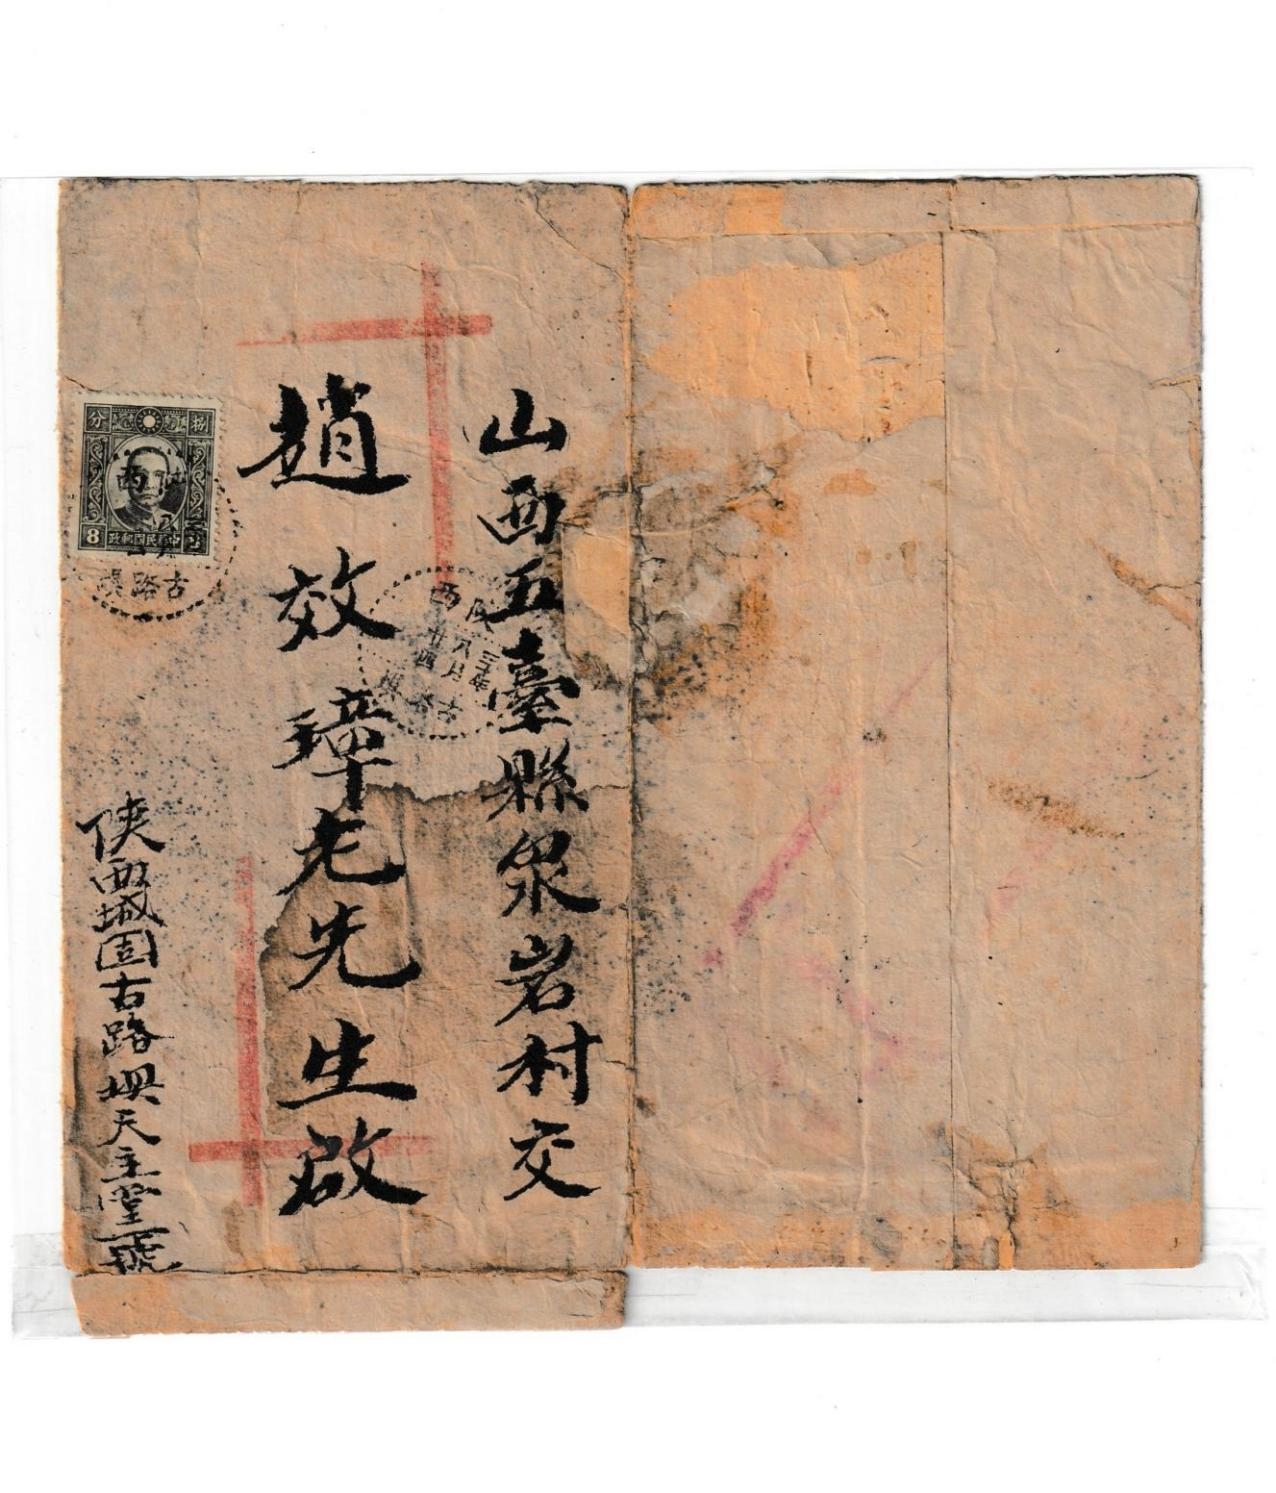 山西五臺縣泉岩村交
趙效璋老先生啟
陝西城固古路壩天主堂一號
捌 分
中華民國郵政
8
古路壩
西
三十年
八月
廿四
古路壩